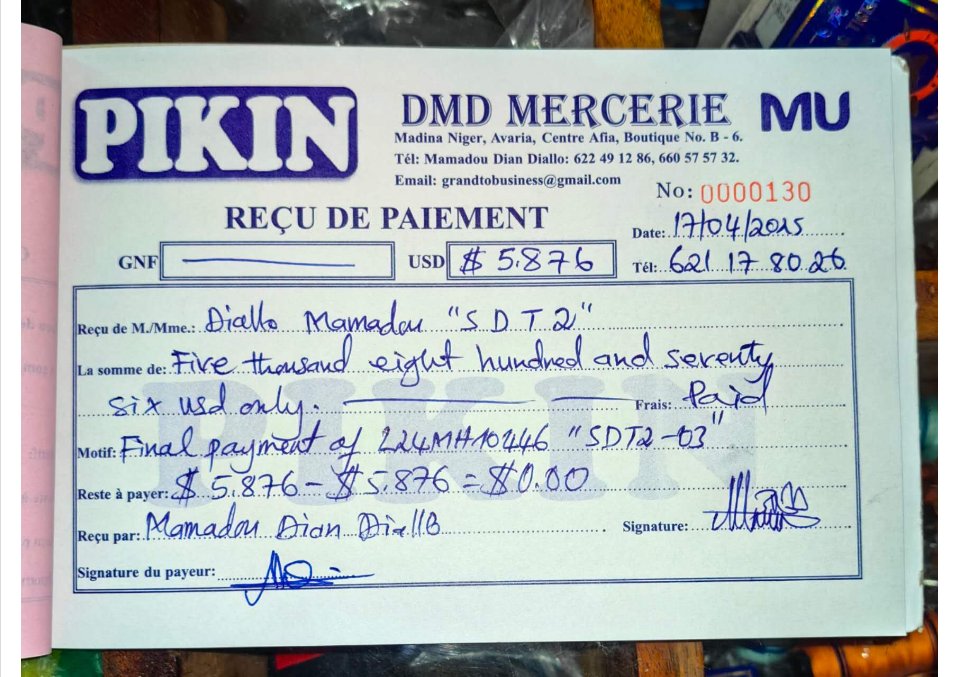 PIKIN
DMD MERCERIE
MU
Madina Niger, Avaria, Centre Afia, Boutique No. B - 6.
Tél: Mamadou Dian Diallo: 622 49 12 86, 660 57 57 32.
Email: grandtobusiness@gmail.com
No: 0000130
REÇU DE PAIEMENT
Date: 17/04/2025
GNF
USD $ 5.876
Tél: 621 17 80 26
Reçu de M./Mme.: Diallo Mamadou "S D T 2"
La somme de: Five thousand eight hundred and seventy
six usd only. Frais: Paid
Motif: Final payment of L24MH10446 "SDT2-03"
Reste à payer: $ 5.876 - $5.876 = $0.00
Reçu par: Mamadou Dian Diallo Signature:
Signature du payeur:
PIKIN